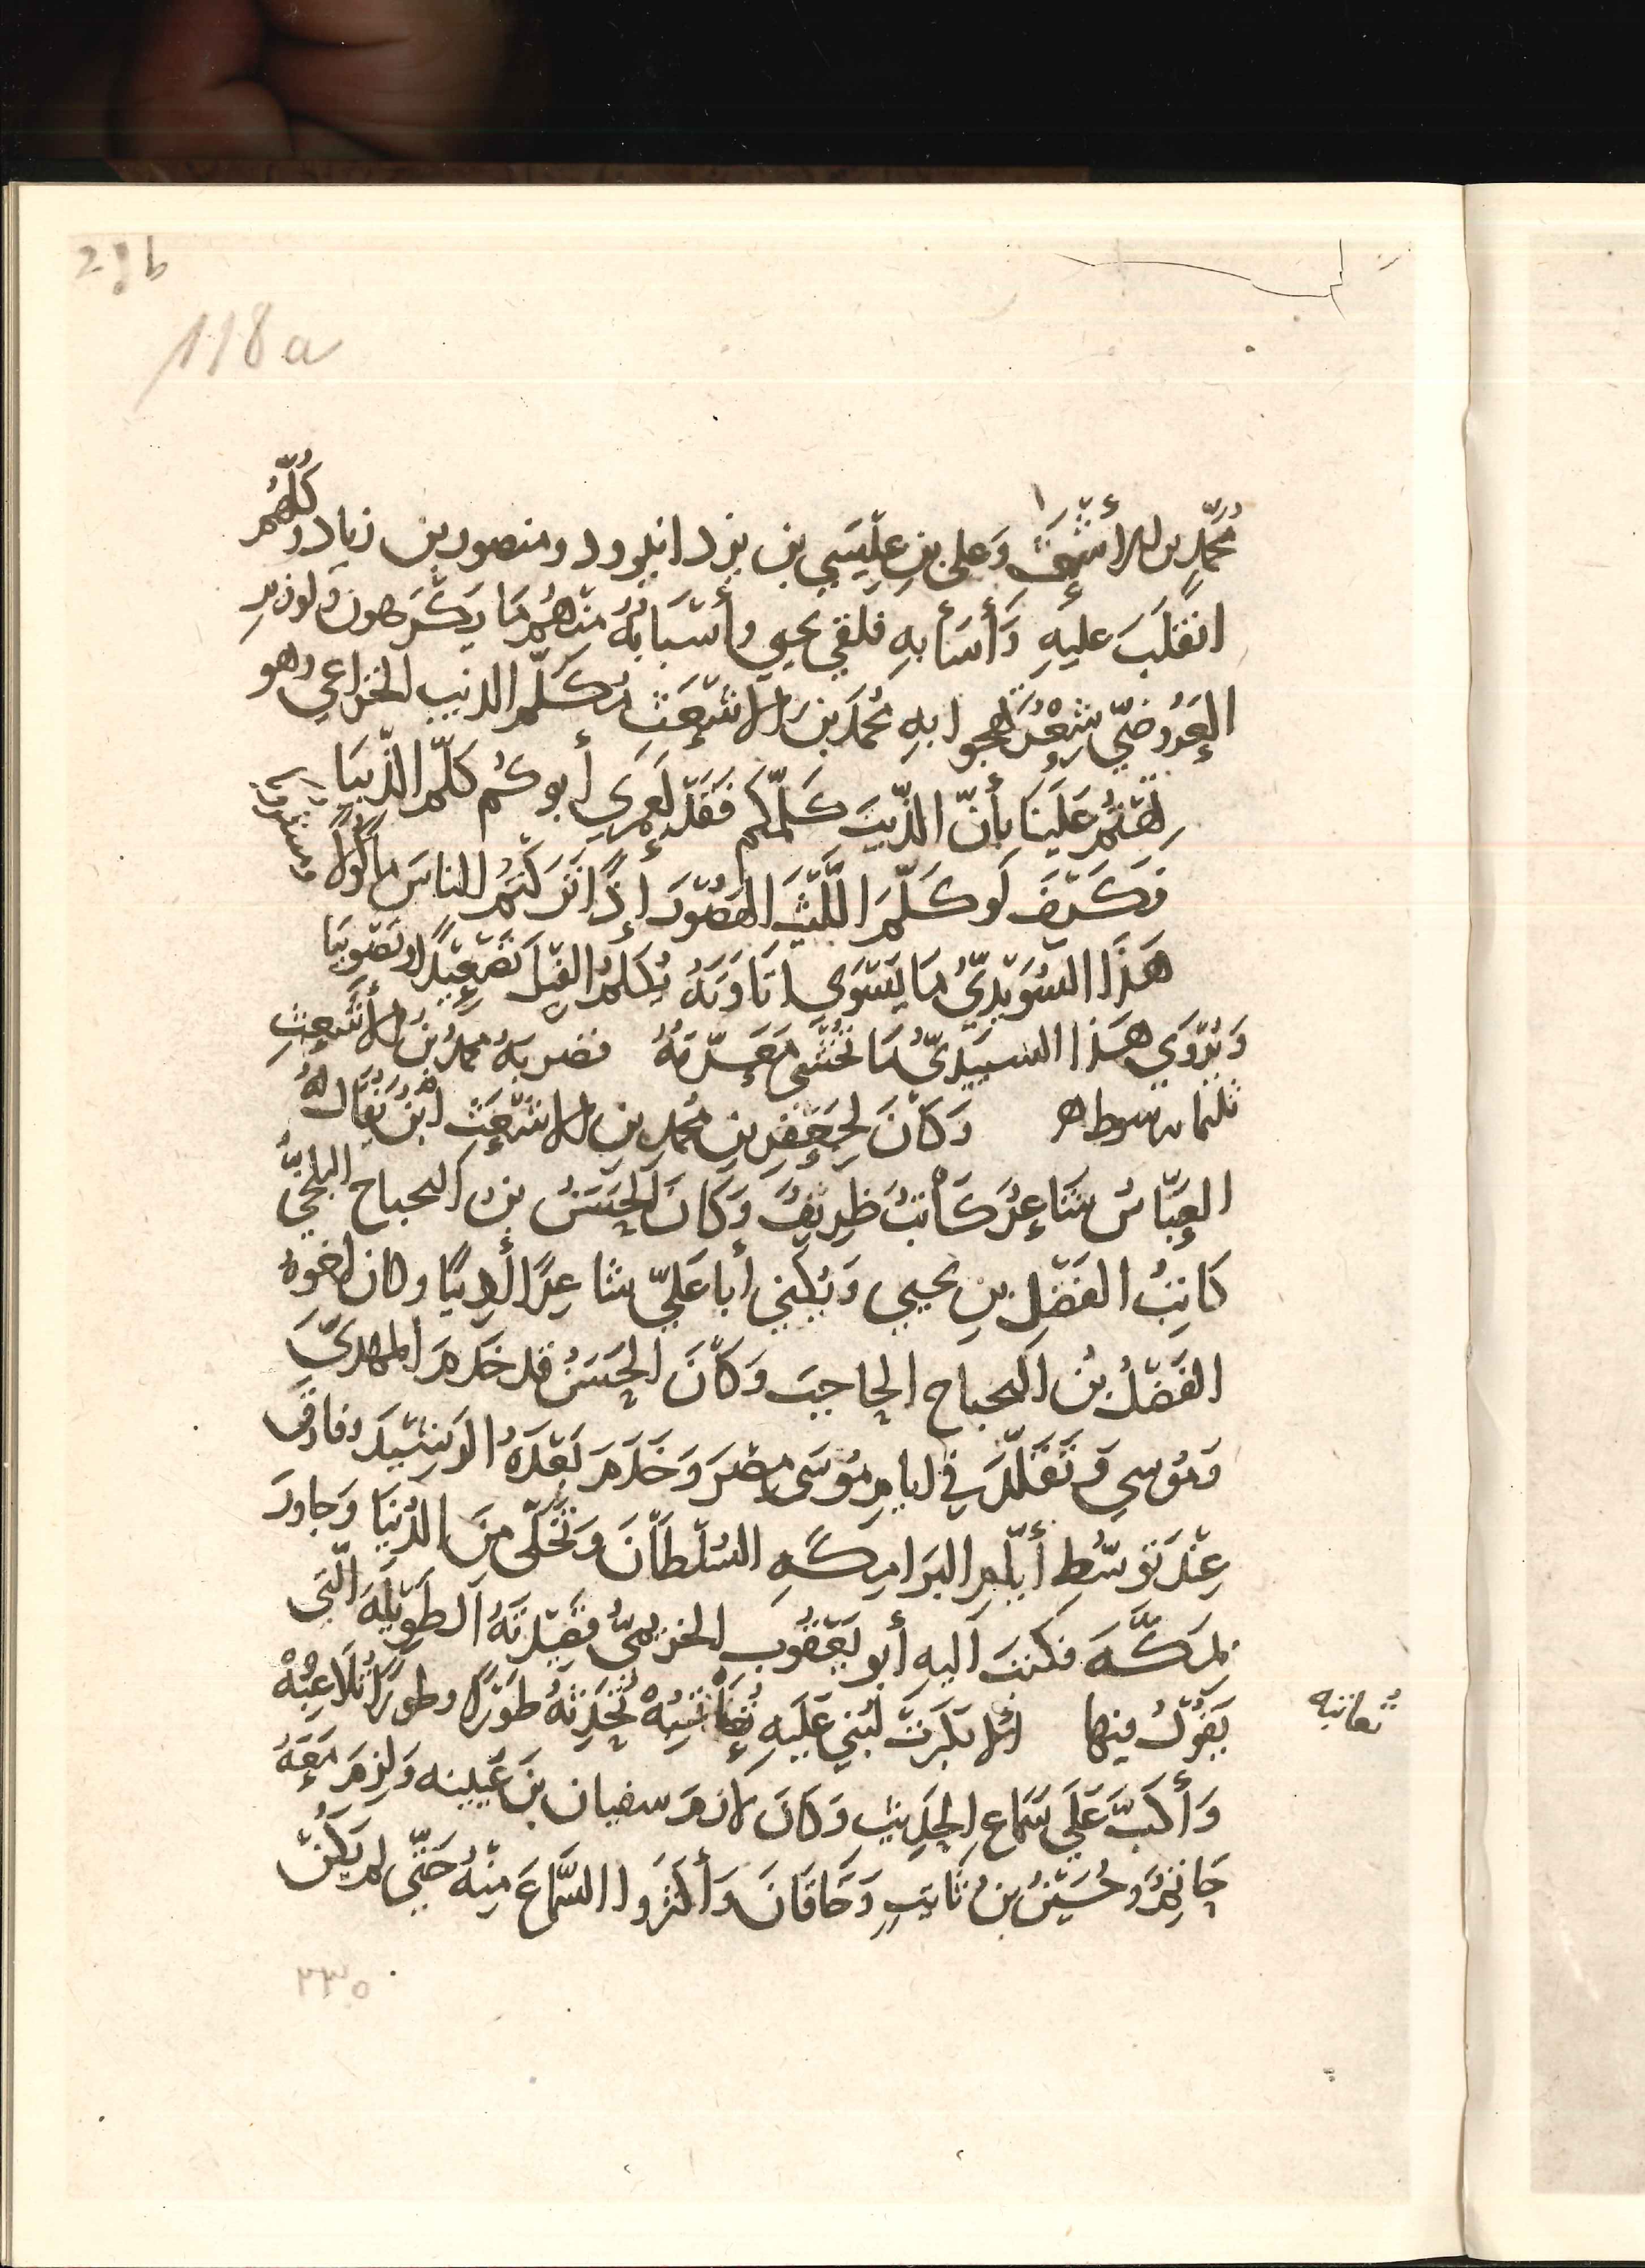 28b
118a
مُحمَّدِ بن الأَشْعَثِ وَعلى بنِ عِيسَي بن يزدانيرود ومنصور بن زياد وكُلُّهُم
انقَلَبَ عليهِ وَأَسَأَ بهِ فَلقي يحيي وأَسْبَابُهُ مِنهُم مَا يَكرَهون ولوزيرِ
العَرُوضّي شِعْرٌ يَهجوا بهِ مُحمَّدَ بن الاشعَثِ مُكلّم الذيب الخزاعي وهو
تِهْتُمْ عَلَينَا بأَنّ الذّيبَ كلّمكم فَقَد لَعَمرِي أَبوكُم كَلَّم الذّيبَا
فكَيفَ لَو كَلَّمَ اللَّيثَ الهَصُورَ إِذًا تَركتُم الناسَ مأكُولاً ومشروبا
هَذَا السُوَيديُّ مَا يَسْوَي اتاوَتَهُ يُكلمُ الفِيلَ تَصْعِيدًا وتَصْوِيبَا
وَيُرْوَي هَذا السبيديُّ مَا تُخْشَى مَعَرّتهُ فضربهُ محمدُ بنُ الأَشْعِثِ
ثلثماىه سوط ه وَكانَ لِجَعْفرِ بنِ مُحمدِ بنِ الاشعَثِ ابنٌ يُقَال لهُ
العَبّاسُ شَاعِرٌ كَاتبٌ ظَريفٌ وَكانَ الحَسَنُ بن البحباح البلخيُّ
كَاتِبُ الفَضْل بنِ يحيي وَيُكنِي أَبا عَليّ شاعِرًا أَدِيبًا وكان اخوهُ
الفَضْلُ بنُ البحباح الحاجبَ وَكانَ الحَسَنُ قد خَدمَ المهديَّ
وَمُوسي وَتَقَلَّدَ في ايامِ مُوسَى مِصْرَ وَخَدَمَ بَعْدَهُ الرَشِيدَ وفارقَ
عِنْدَ تَوسّطِ أَيّامِ البَرامِكةِ السُلْطَانَ وَتَخَلَّى مِنَ الدُنيَا وَجاورَ
بمكّةَ فكتبَ اليهِ أَبو يَعْقُوبَ الخزيميُّ قصَيدتَهُ الطَوِيلَةَ الّتي
يَقُولُ فيها تُعاتبُهْ تُحَدِّثهُ طَوْرًا وطَورًا تُلاعِبُهْ
تعاتبه
وَأَكَبَّ عَلَي سَمَاعِ الحَدِيثِ وَكانَ لازمَ سفيان بن عُيينه وَلزمَ مَعَهُ
وحُسَينُ بنُ ثَابِتٍ وَخَاقَانَ وَأَكثَرُوا السَّمَاعَ مِنهُ حَتّي لم يَكُنْ
٢٣٥